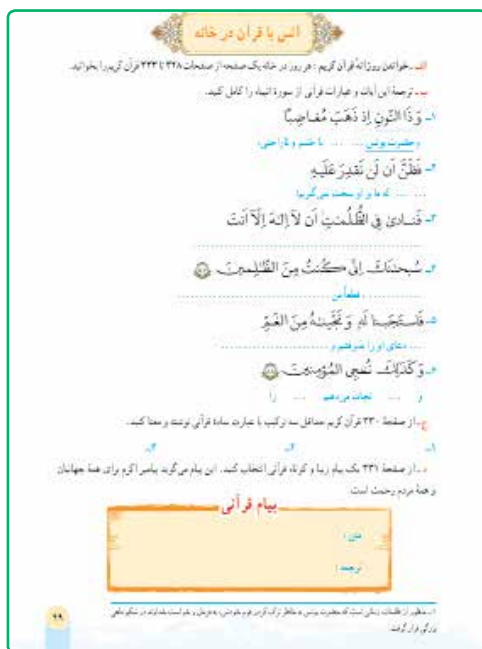 انس با قرآن در خانه
الف ـ خواندن روزانهٔ قرآن کریم : هر روز در خانه یک صفحه از صفحات ۳۲۸ تا ۳۳۳ قرآن کریم را بخوانید.
ب ـ ترجمهٔ این آیات و عبارات قرآنی از سورهٔ انبیاء را کامل کنید.
۱ـ وَ ذَا النّونِ اِذ ذَهَبَ مُغاضِبًا
و حضرت یونس ...... با خشم و ناراحتی؛
۲ـ فَظَنَّ اَن لَن نَقدِرَ عَلَیهِ
...... که ما بر او سخت نمی‌گیریم؛
۳ـ فَنادیٰ فِی الظُّلُمٰتِ اَن لا اِلٰهَ اِلّا اَنتَ
۴ـ سُبحٰنَکَ اِنّی کُنتُ مِنَ الظّٰلِمینَ
...... قطعاً من ......
۵ـ فَاستَجَبنا لَهُ وَ نَجَّینٰهُ مِنَ الغَمِّ
...... دعای او را پذیرفتیم و ......
۶ـ وَ کَذٰلِکَ نُنجِی المُؤمِنینَ
و ...... نجات می‌دهیم ...... را
ج ـ از صفحهٔ ۳۳۰ قرآن کریم حداقل سه ترکیب یا عبارت سادهٔ قرآنی نوشته و معنا کنید.
۱ـ ۲ـ ۳ـ
د ـ از صفحهٔ ۳۳۱ یک پیام زیبا و کوتاه قرآنی انتخاب کنید. این پیام می‌گوید پیامبر اکرم برای همهٔ جهانیان
و همهٔ مردم رحمت است.
پیام قرآنی
متن :
ترجمه :
۱ـ منظور از ظلمات، زمانی است که حضرت یونس به خاطر ترک کردن قوم خودش، به فرمان و خواست خداوند در شکم ماهی
بزرگی قرار گرفت.
۹۹